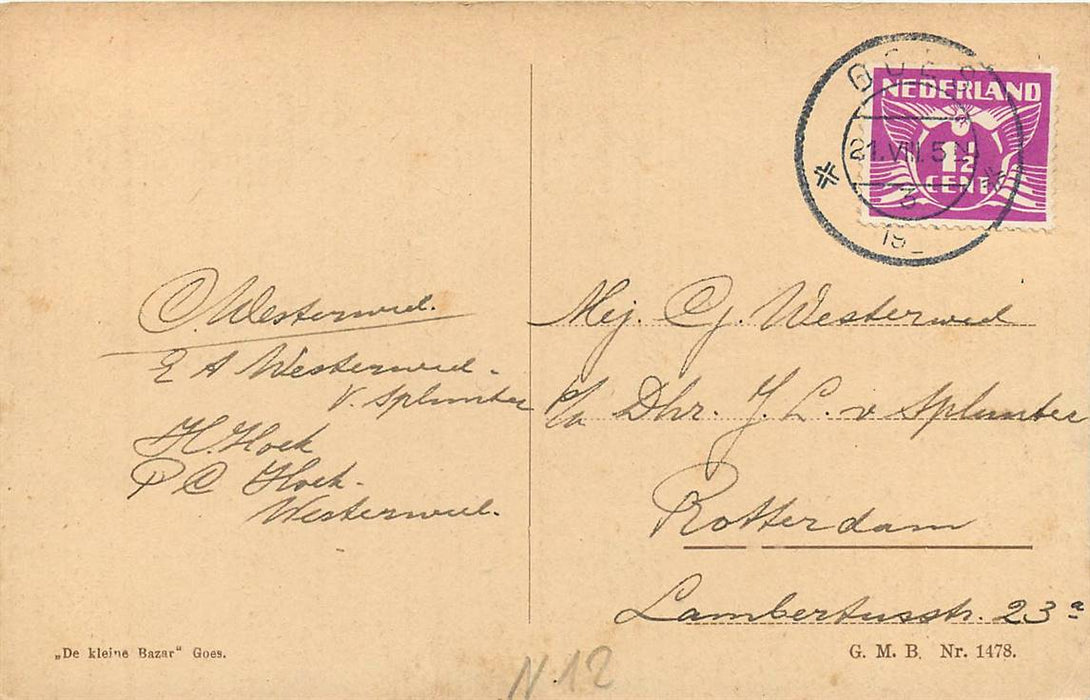 GOES
NEDERLAND
21.VII.5
1½
CENT
3
19
C. Westerweel.
E A Westerweel-
v. Splunter
H. Hoek
P C Hoek-
Westerweel.
Mej. Cj. Westerweel
p/a Dhr. J. L. v Splunter
Rotterdam
Lambertusstr. 23a
„De kleine Bazar“ Goes.
G. M. B. Nr. 1478.
N 12